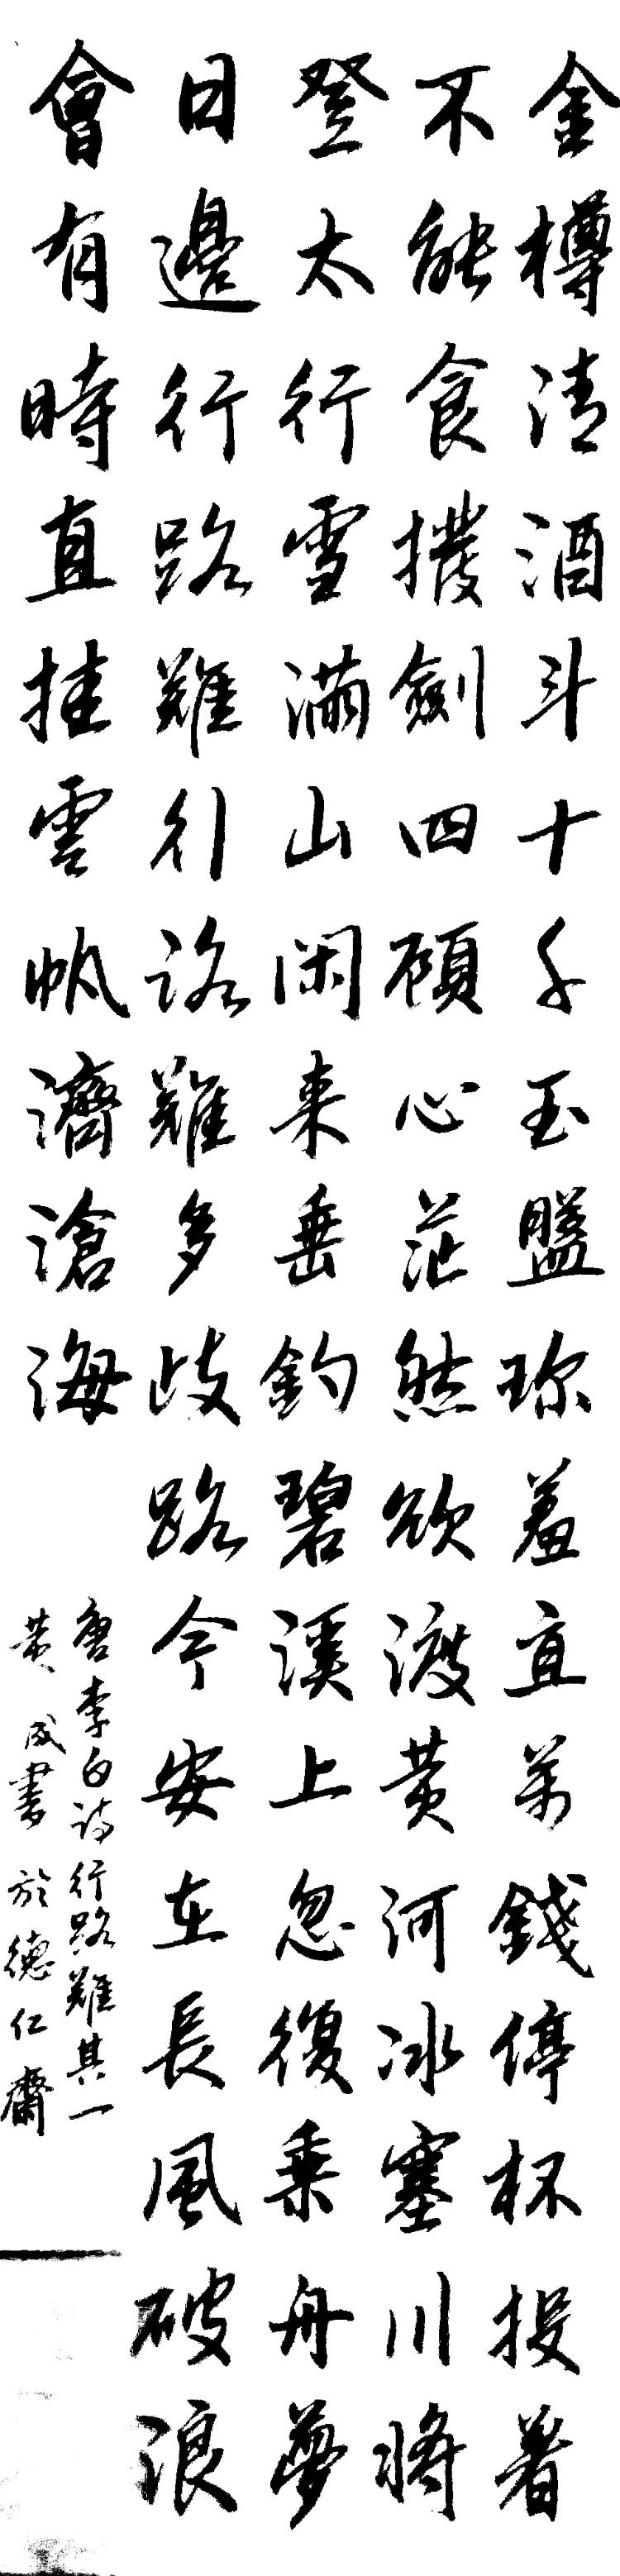 金樽清酒斗十千玉盤珍羞直萬錢停杯投箸
不能食拔劍四顧心茫然欲渡黃河冰塞川將
登太行雪滿山閑來垂釣碧溪上忽復乘舟夢
日邊行路難行路難多歧路今安在長風破浪
會有時直挂雲帆濟滄海
唐李白詩行路難其一
黄成書於德仁齋